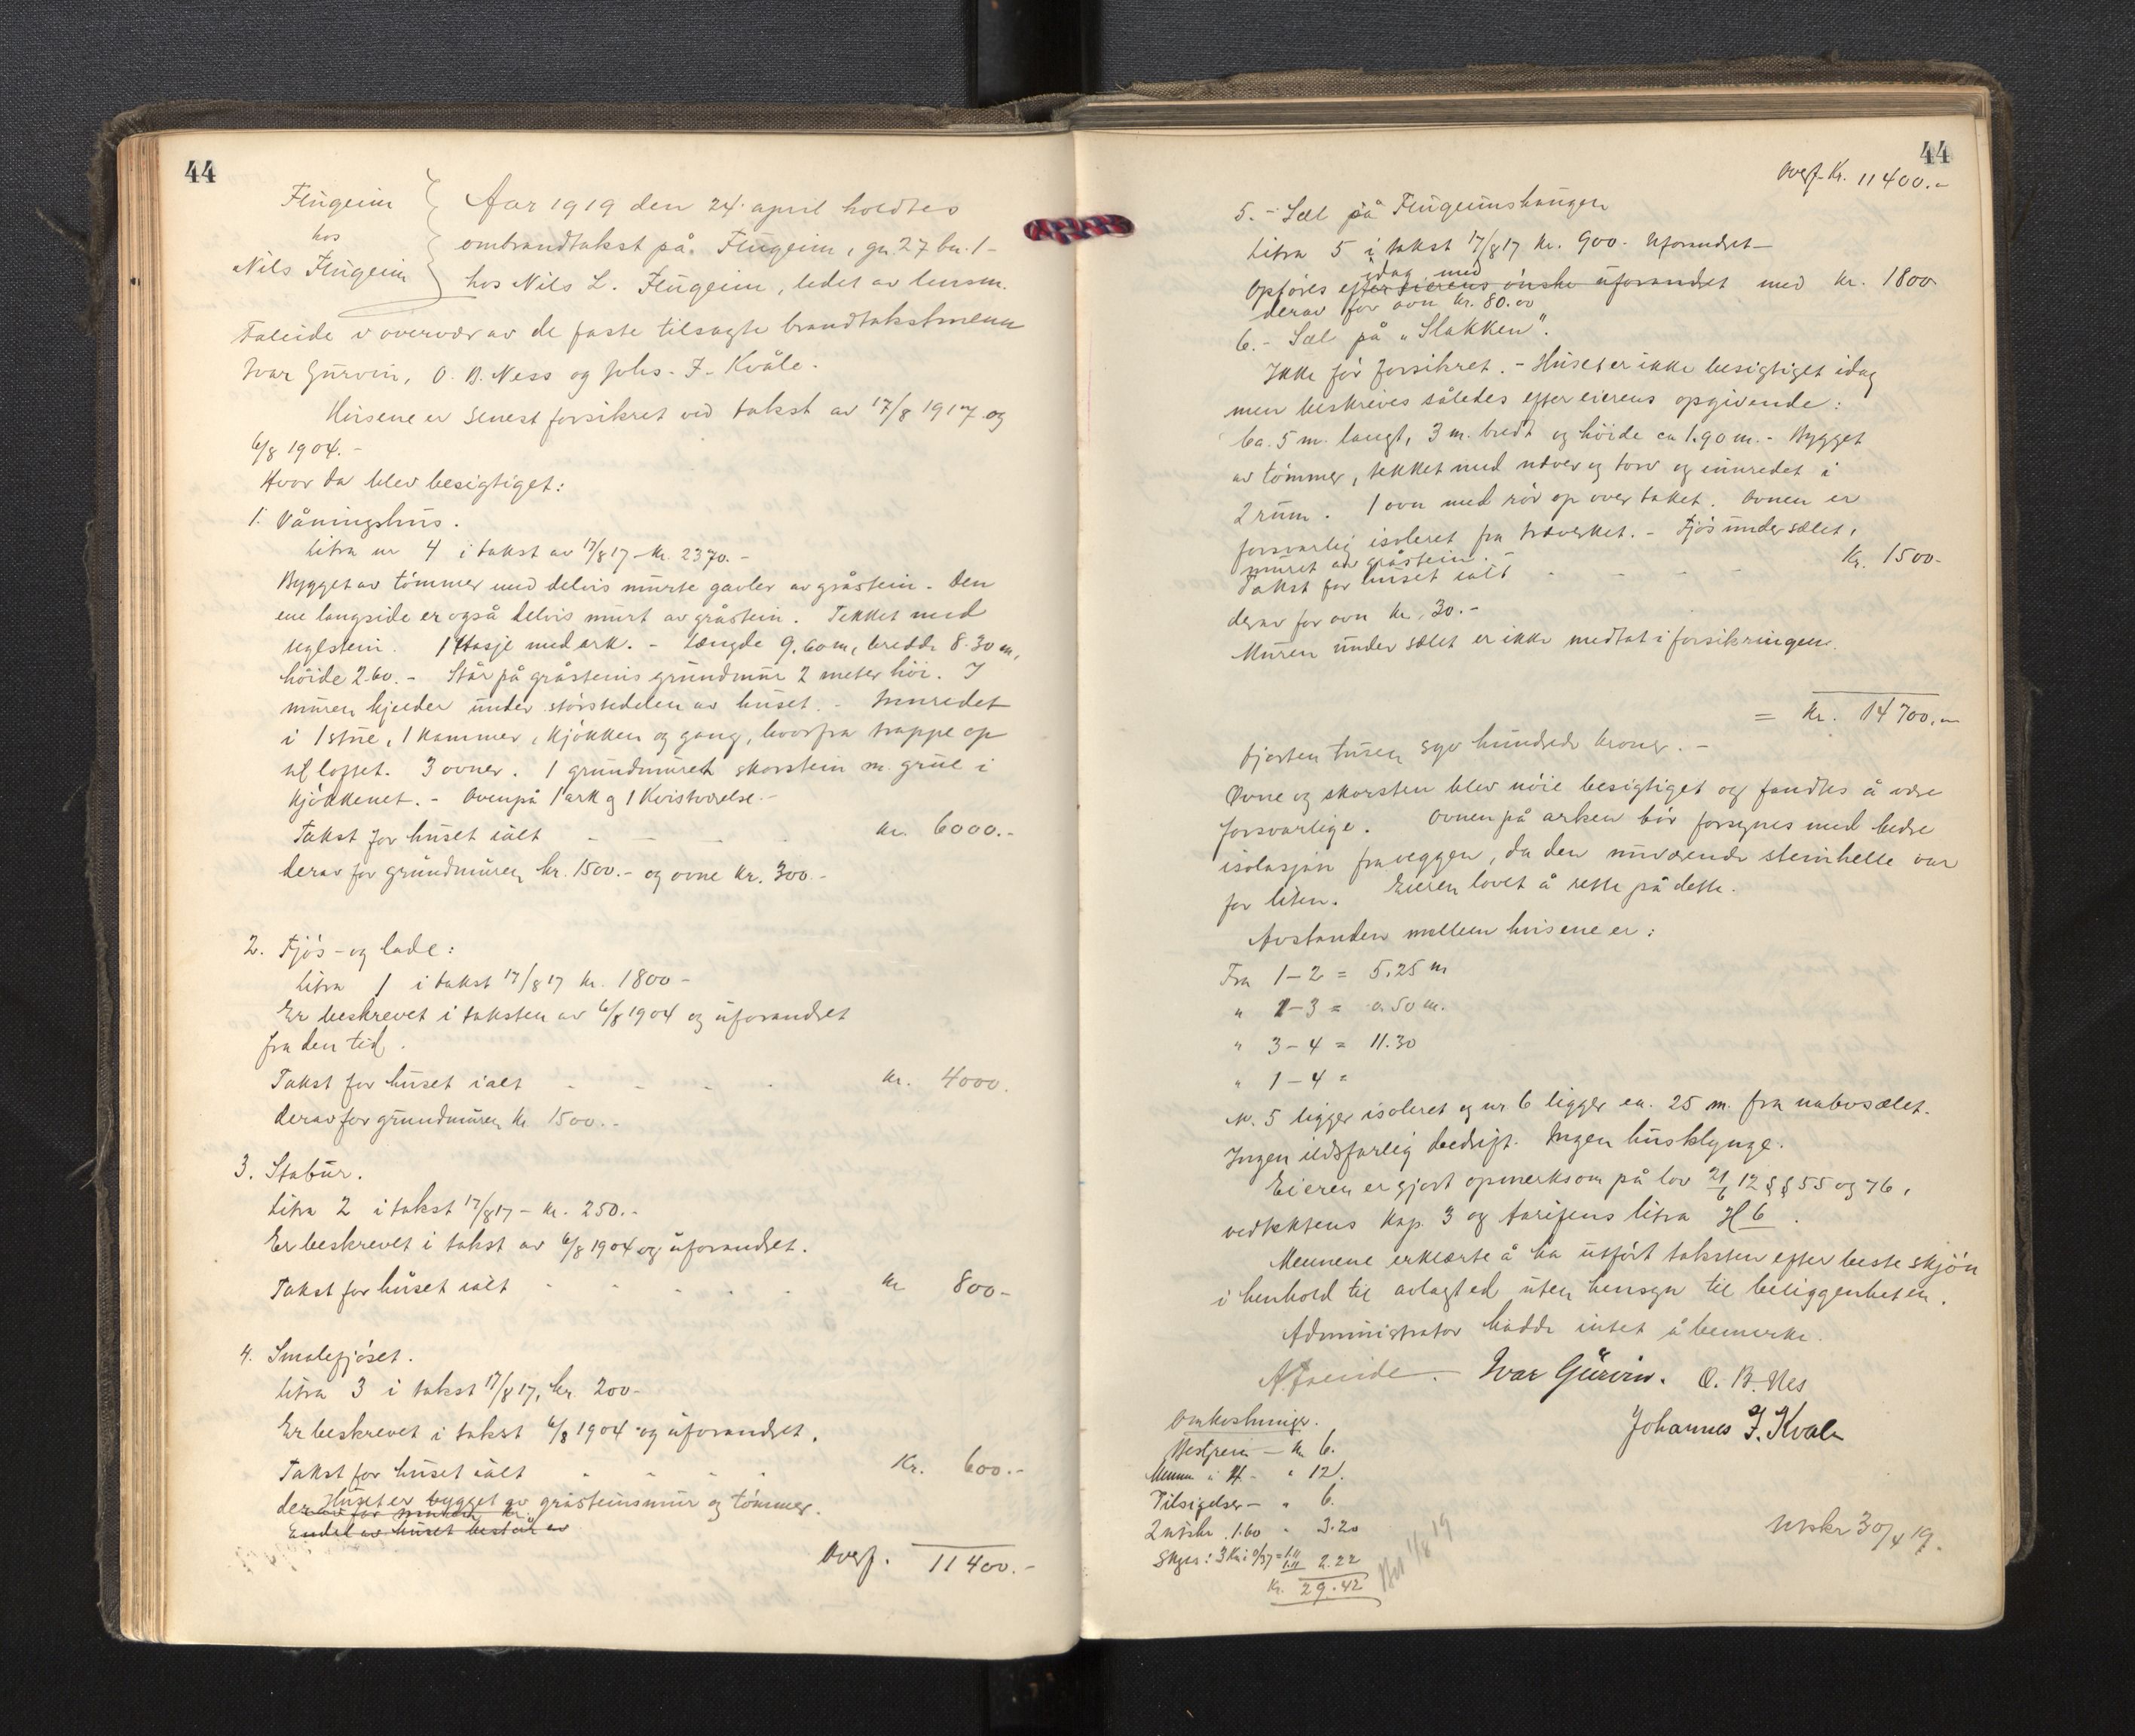 44
Flugeim
hos
Nils Flugeim
Aar 1919 den 24. april holdtes
ombrandtakst på Flugeim, gn. 27 bn. 1-
hos Nils L. Flugeim, ledet av lensm.
Faleide i overvær av de faste tilsagte brandtakstmenn
Ivar Gurvin, O. B. Ness og Johs. J. Kvåle.
Husene er senest forsikret ved takst av 17/8 1917 og
6/8 1904.-
Hvor da blev besigtiget:
1. Våningshus.
Litra nr 4 i takst av 17/8 17 - kr. 2370.-
Bygget av tømmer med delvis murte gavler av gråstein. Den
ene langside er også delvis murt av gråstein. Tekket med
teglstein. 1 Etasje med ark. - Længde 9.60 m, bredde 8.30 m,
høide 2.60. - Står på gråsteins grundmur 2 meter høi. I
muren kjelder under størstedelen av huset. - Innredet
i 1 stue, 1 kammer, kjøkken og gang, hvorfra trappe op
til loftet. 3 ovner. 1 grundmuret skorstein m. grue i
kjøkkenet. - Ovenpå 1 ark og 1 kvistværelse.-
Takst for huset ialt - - - kr. 6000.-
derav for grundmuren kr. 1500.- og ovne kr. 300.-
2. Fjøs- og lade:
Litra 1 i takst 17/8 17 kr. 1800-
Er beskrevet i taksten av 6/8 1904 og uforandret
fra den tid.
Takst for huset ialt - - - - kr. 4000.
derav for grundmuren kr 1500.-
3. Stabur.
Litra 2 i takst 17/8 17 - kr. 250.-
Er beskrevet i takst av 6/8 1904 og uforandret.
Takst for huset ialt - - - - kr 800-
4. Smalefjøset.
Litra 3 i takst 17/8 17, kr. 200-
Er beskrevet i takst 6/8 1904 og uforandret.
Takst for huset ialt - - - - Kr. 600.-
Huset er bygget av gråsteinsmur og tømmer.
derav for muren kr.
Endel av huset består av
Overf. 11400.-
44
Overf. Kr. 11400.-
5. - Sæl på Flugeimshaugen
Litra 5 i takst 17/8 17 kr. 900- Uforandret-
idag med
Opføres efter eierens ønske uforandret med kr. 1800
derav for ovn kr. 80.00
6.- Sæl på "Slakken".
Ikke før forsikret. - Huset er ikke besigtiget idag
men beskrives således efter eierens opgivende:
Ca. 5 m. langt, 3 m. bredt og høide ca 1.90 m. - Bygget
av tømmer, tekket med næver og torv og innredet i
2 rum. 1 ovn med rør op over taket. Ovnen er
forsvarlig isoleret fra træverket. - Fjøs under sælet,
muret av gråstein. -
Takst for huset ialt - - - - Kr. 1500-
derav for ovn kr. 30.-
Muren under sælet er ikke medtat i forsikringen.
= Kr. 14700.-
Fjorten tusen syv hundrede kroner. -
Ovne og skorsten blev nøie besigtiget og fandtes å være
forsvarlige. Ovnen på arken bør forsynes med bedre
isolasjon fra veggen, da den nuværende steinhelle var
for liten. Eieren lovet å rette på dette.
Avstanden mellem husene er:
Fra 1-2 = 5.25 m
" 2-3 = 0.50 m.
" 3-4 = 11.30
" 1-4 =
Nr. 5 ligger isoleret og nr. 6 ligger ca. 25 m. fra nabosælet.
Ingen ildsfarlig bedrift. Ingen husklynge.
Eieren er gjort opmerksom på lov 21/6 12 §§ 55 og 76,
vedtektens Kap. 3 og tarifens litra H 6.
Mennene erklærte å ha utført taksten efter beste skjøn
i henhold til avlagt ed uten hensyn til beliggenheten.
Administrator hadde intet å bemerke.
A. Faleide. Ivar Gurvin. O. B. Nes
Johannes J. Kvåle
Omkostninger.
Bestyrer - kr 6.
Menn à 4 - " 12.
Tilsigelser - " 6.
2 utskr. 1.60 " 3.20
Skyss: 3 Km i 0/37 = 1.11
1.11 2.22
Kr. 29.42
Bet 1/8 19
Utskr 30/4 19.